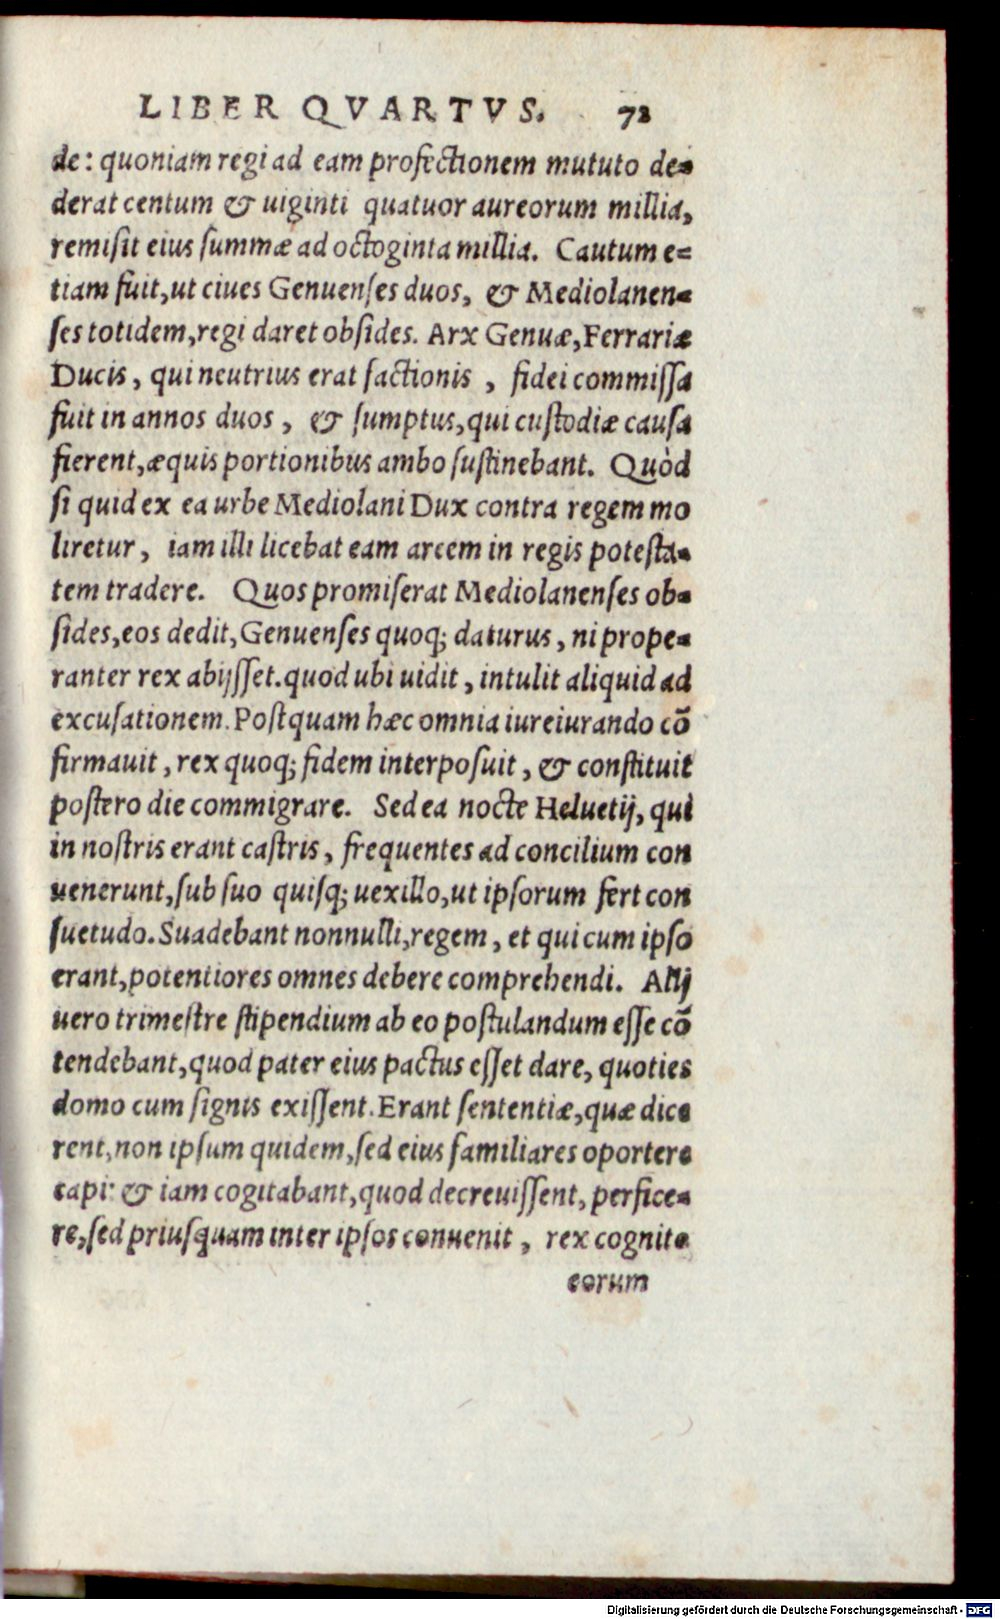 LIBER QVARTVS. 72
de: quoniam regi ad eam profectionem mututo de-
derat centum & uiginti quatuor aureorum millia,
remisit eius summæ ad octoginta millia. Cautum e-
tiam fuit, ut ciues Genuenses duos, & Mediolanen-
ses totidem, regi daret obsides. Arx Genuæ, Ferrariæ
Ducis, qui neutrius erat factionis, fidei commissa
fuit in annos duos, & sumptus, qui custodiæ causa
fierent, æquis portionibus ambo sustinebant. Quòd
si quid ex ea urbe Mediolani Dux contra regem mo
liretur, iam illi licebat eam arcem in regis potesta-
tem tradere. Quos promiserat Mediolanenses ob-
sides, eos dedit, Genuenses quoq; daturus, ni prope-
ranter rex abijsset. quod ubi uidit, intulit aliquid ad
excusationem. Postquam hæc omnia iureiurando cō
firmauit, rex quoq; fidem interposuit, & constituit
postero die commigrare. Sed ea nocte Heluetij, qui
in nostris erant castris, frequentes ad concilium con
uenerunt, sub suo quisq; uexillo, ut ipsorum fert con
suetudo. Suadebant nonnulli, regem, et qui cum ipso
erant, potentiores omnes debere comprehendi. Alij
uero trimestre stipendium ab eo postulandum esse cō
tendebant, quod pater eius pactus esset dare, quoties
domo cum signis exissent. Erant sententiæ, quæ dice
rent, non ipsum quidem, sed eius familiares oportere
capi: & iam cogitabant, quod decreuissent, perfice-
re, sed priusquam inter ipsos conuenit, rex cognito
eorum
Digitalisierung gefördert durch die Deutsche Forschungsgemeinschaft - DFG